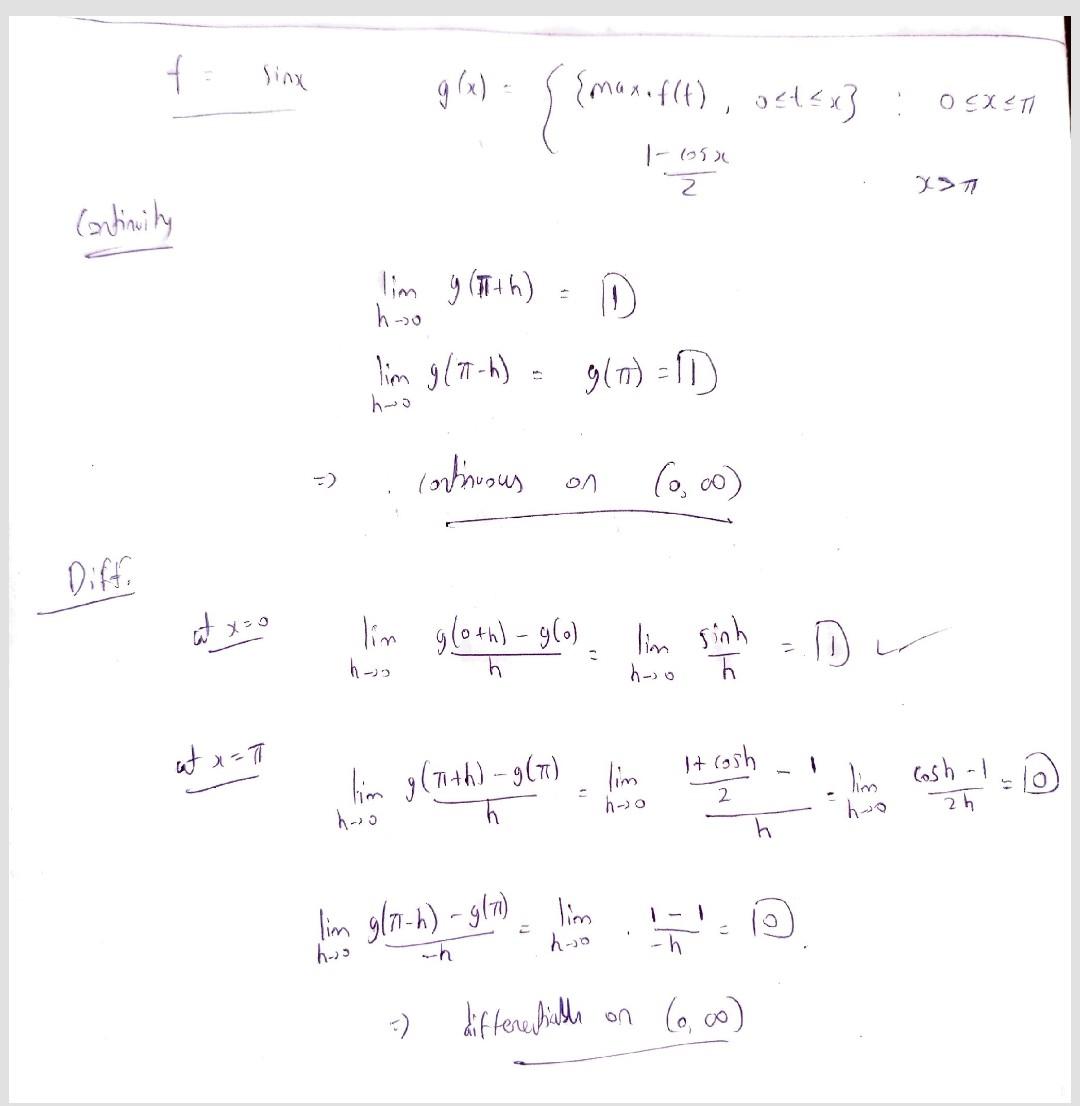 f = sinx g(x) = { {max.f(t) , 0≤t≤x} : 0≤x≤π
1-cosx/2 x>π
Continuity
lim h→0 g(π+h) = 1
lim h→0 g(π-h) = g(π) = 1
⇒ continuous on (0, ∞)
Diff.
at x=0 lim h→0 g(0+h) - g(0)/h = lim h→0 sinh/h = 1 ✓
at x=π lim h→0 g(π+h) - g(π)/h = lim h→0 1+cosh/2 - 1/h = lim h→0 cosh-1/2h = 0
lim h→0 g(π-h) - g(π)/-h = lim h→0 . 1-1/-h = 0.
⇒ differentiable on (0, ∞)